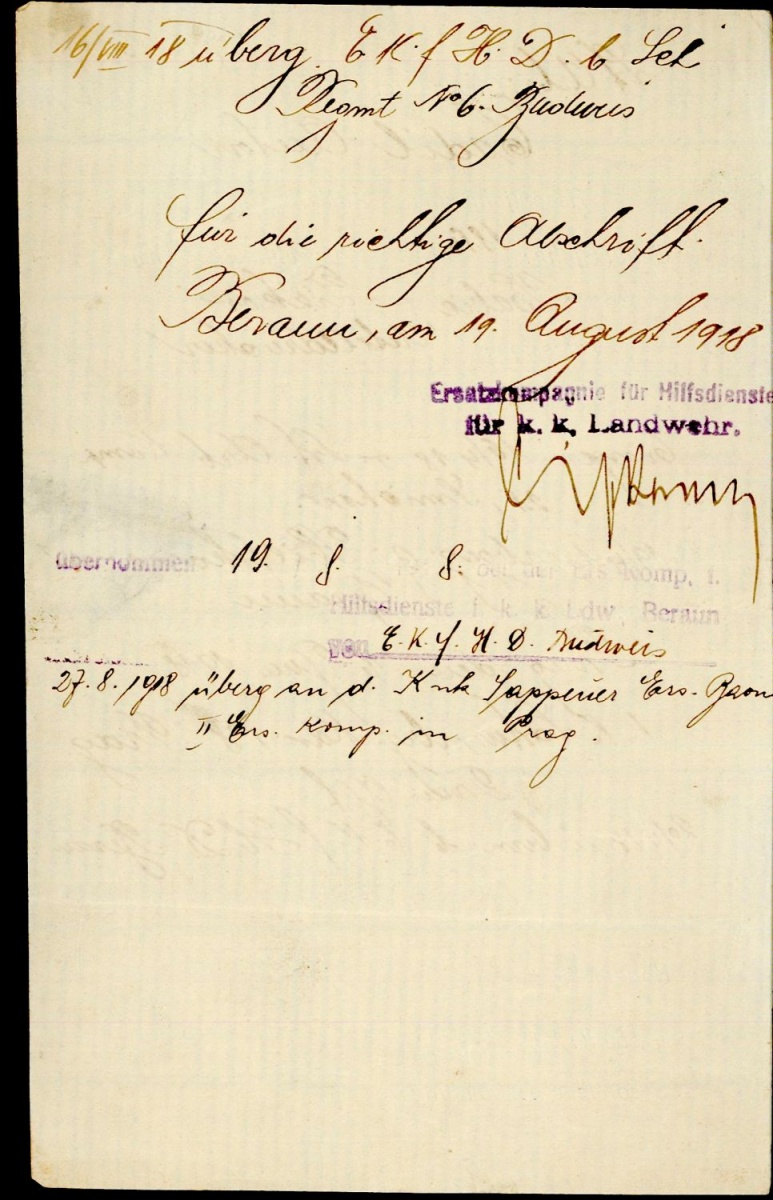 16/VIII 18 überg. E K. f H. D. b Sch
Regmt No 6. Buduris
für die richtige Abschrift.
Beraun, am 19. August 1918
Ersatzkompagnie für Hilfsdienste
für k. k. Landwehr.
übernommen 19. 8. 8. Ers Komp. f.
Hilfsdienste f. k. k. Ldw. Beraun
von E. K. f. H. D. Budweis
27. 8. 1918 überg an d. K uk Sappeuer Ers. Baon
II Ers. Komp. in Prag.